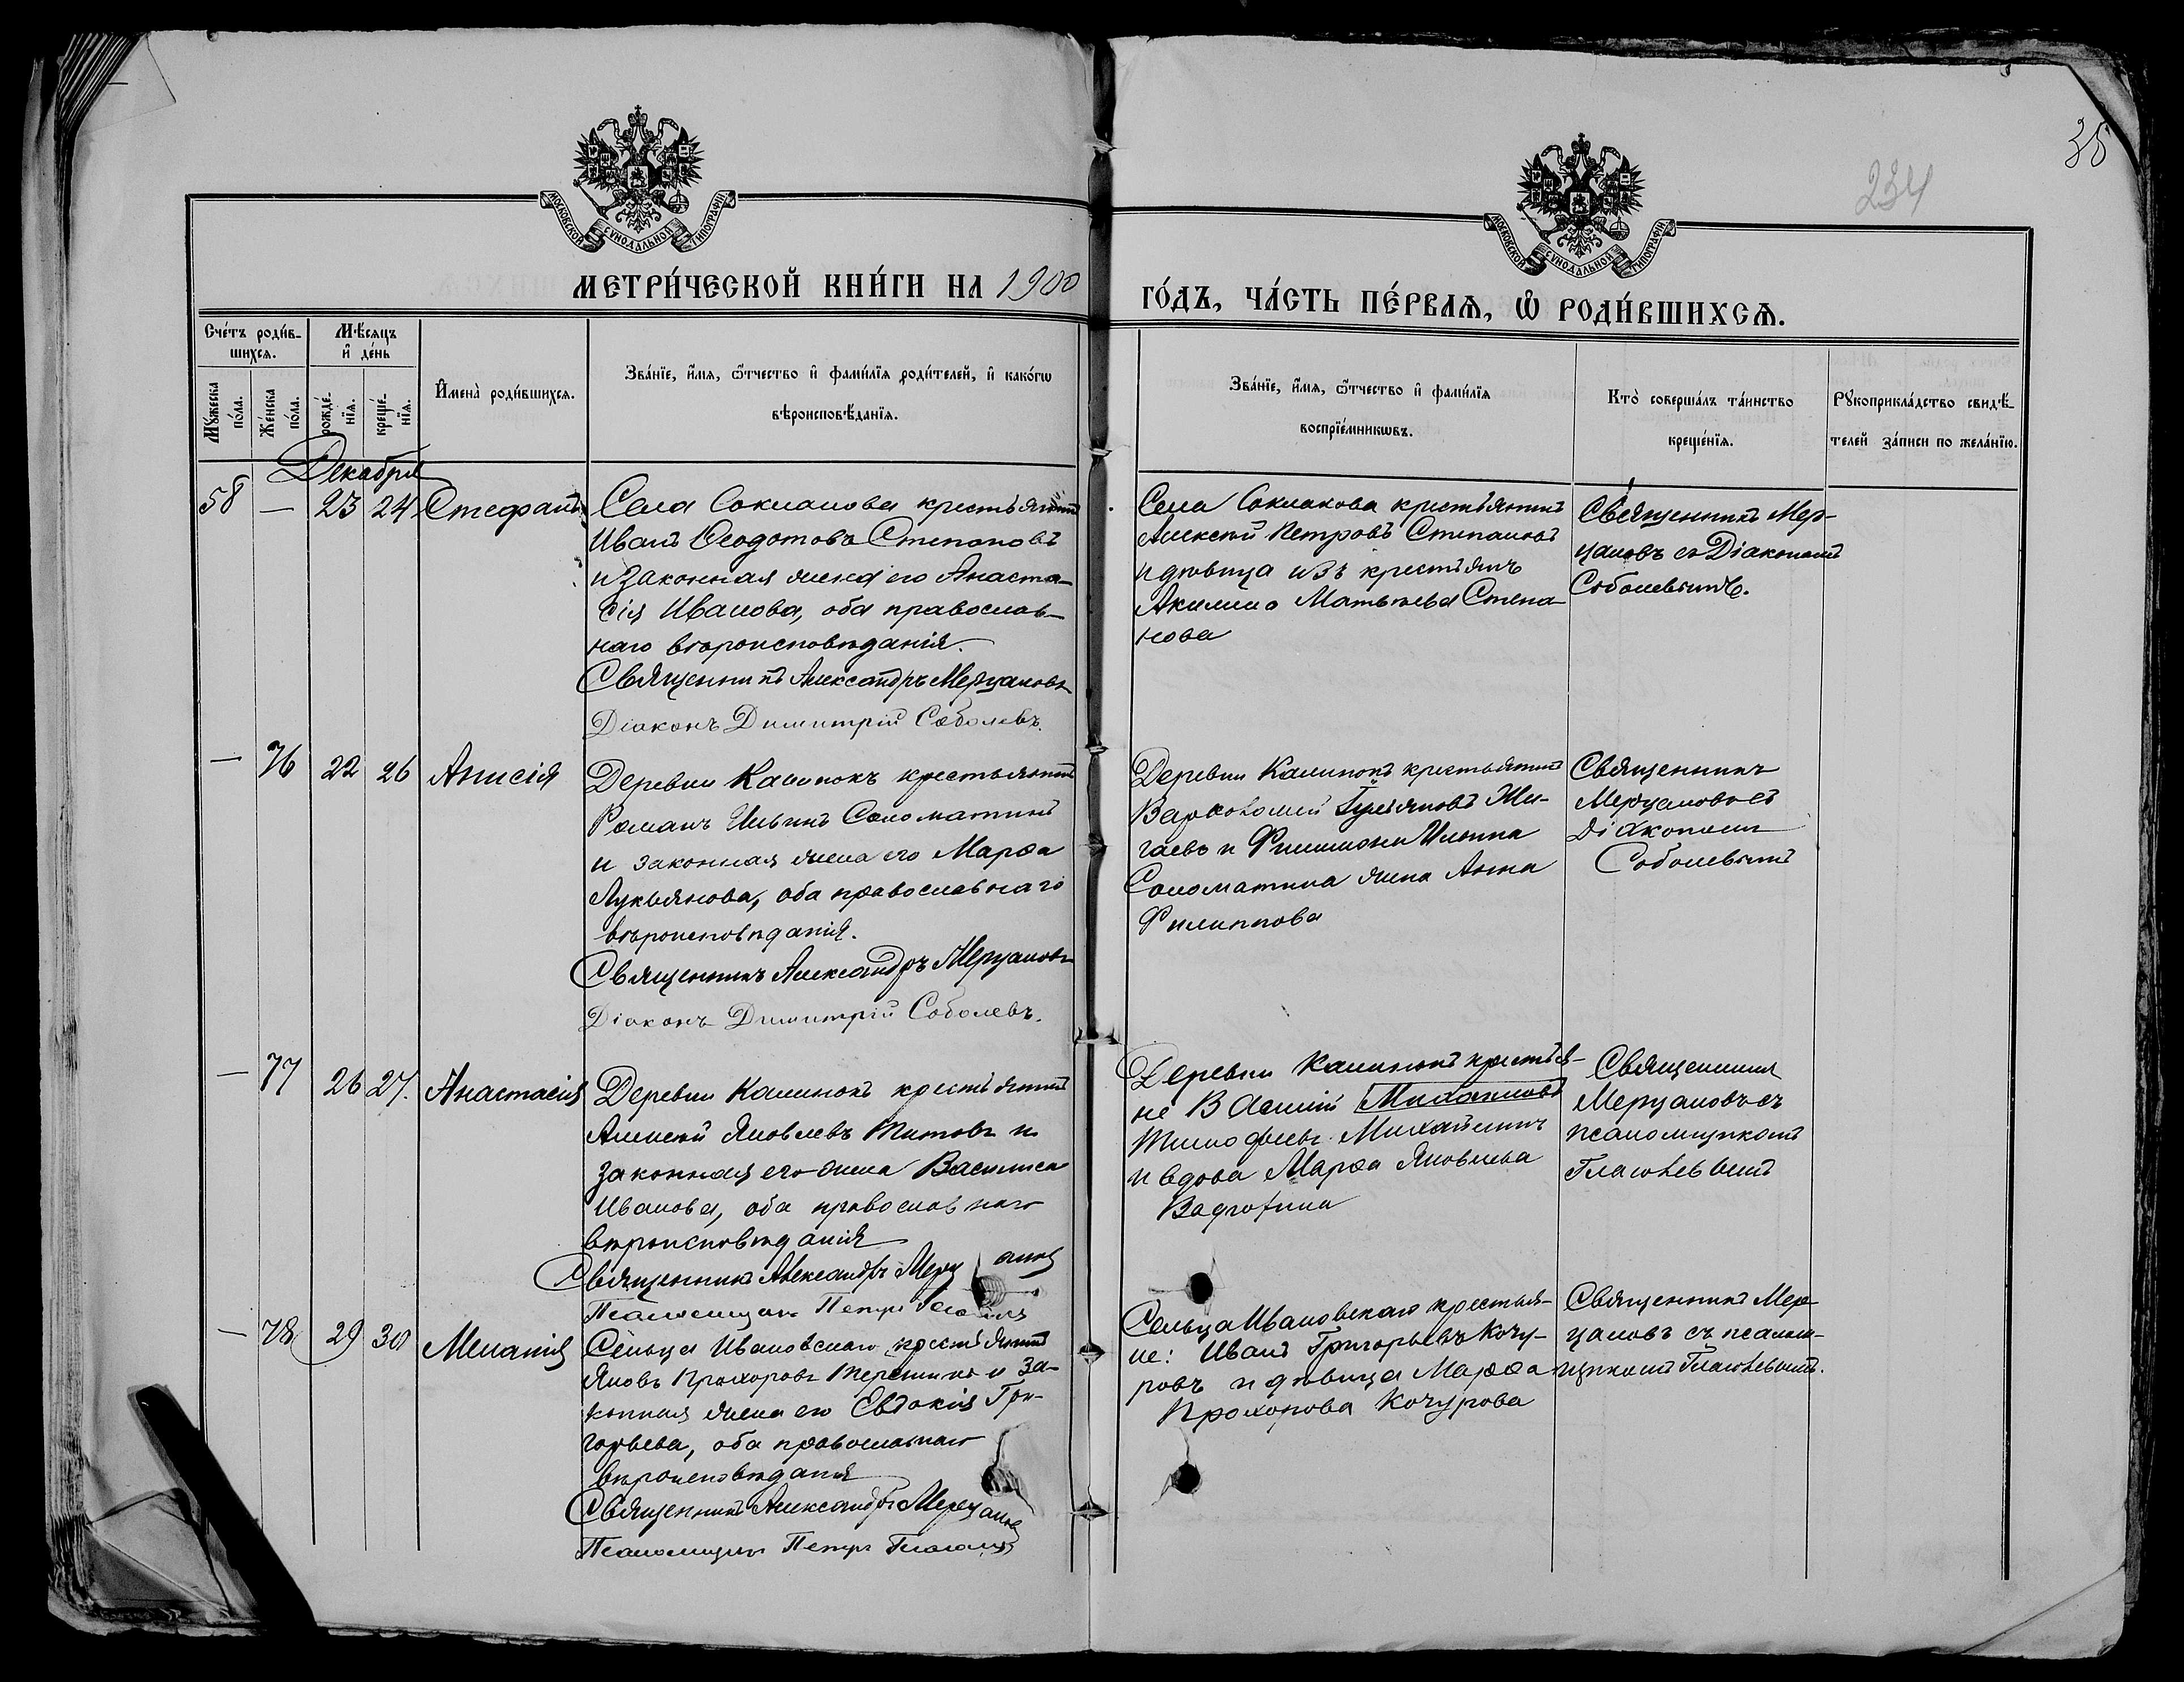 35
234
МОСКОВСКОЙ СѴНОДАЛЬНОЙ ТИПОГРАФІИ
МОСКОВСКОЙ СѴНОДАЛЬНОЙ ТИПОГРАФІИ
МЕТРИ́ЧЕСКОЙ КНИ́ГИ НА 1900
ГО́ДЪ, ЧА́СТЬ ПЕ́РВАѦ, Ѡ҆ РОДИ́ВШИХСѦ.
Сче́тъ роди́в-
шихсѧ.
Мѣ́сѧцъ
и҆ де́нь
Мꙋ́жеска по́ла.
Же́нска по́ла.
рожде́-нїѧ.
креще́-нїѧ.
И҆мена̀ роди́вшихсѧ.
Зва́нїе, и҆́мѧ, ѻ҆́тчество и҆ фами́лїѧ роди́телей, и҆ како́гѡ
вѣроисповѣ́данїѧ.
Зва́нїе, и҆́мѧ, ѻ҆́тчество и҆ фами́лїѧ
воспрїе́мникѡвъ.
Кто̀ соверша́лъ та́инство
креще́нїѧ.
Рꙋкоприкла́дство свидѣ́-
телей за́писи по жела́нїю.
Декабря
58 — 23 24 Стефанъ
Села Соклакова крестьянинъ
Иванъ Ѳеодотовъ Степановъ
и законная жена его Анаста-
сія Иванова, оба православ-
наго вѣроисповѣданія.
Священникъ Александръ Мерцаловъ
Діаконъ Димитрій Соболевъ.
Села Соклакова крестьянинъ
Алексѣй Петровъ Степановъ
и дѣвица изъ крестьянъ
Акилина Матвѣева Степа-
нова
Священникъ Мер-
цаловъ съ Діакономъ
Соболевымъ.
— 76 22 26 Анисія
Деревни Калинокъ крестьянинъ
Романъ Ильинъ Соломатинъ
и законная жена его Марѳа
Лукьянова, оба православнаго
вѣроисповѣданія.
Священникъ Александръ Мерцаловъ
Діаконъ Димитрій Соболевъ.
Деревни Калинокъ крестьянинъ
Варѳоломей Жи-
гаевъ и Ильина
Соломатина жена Анна
Филиппова
Священникъ
Мерцаловъ съ
Діакономъ
Соболевымъ
— 77 26 27. Анастасія
Деревни Калинокъ крестьянинъ
Алексѣй Яковлевъ Титовъ и
законная его жена Василиса
Иванова, оба православнаго
вѣроисповѣданія
Священникъ Александръ Мерцаловъ
Псаломщикъ Петръ
Деревни Калинокъ крестья-
не Василій
Тимофѣевъ Михайлинъ
и вдова Марѳа Яковлева
Священникъ
Мерцаловъ съ
псаломщикомъ
Глаголевымъ
— 78 29 30 Меланія
Сельца Ивановскаго крестьянинъ
Яковъ Прохоровъ и за-
конная жена его Евдокія Гри-
горьева, оба православнаго
вѣроисповѣданія
Священникъ Александръ Мерцаловъ
Псаломщикъ Петръ Глаголевъ
Сельца Ивановскаго крестья-
не: Иванъ Григорьевъ Кочу-
ровъ и дѣвица Марѳа
Прохорова Кочурова
Священникъ Мер-
цаловъ съ псалом-
щикомъ Глаголевымъ.